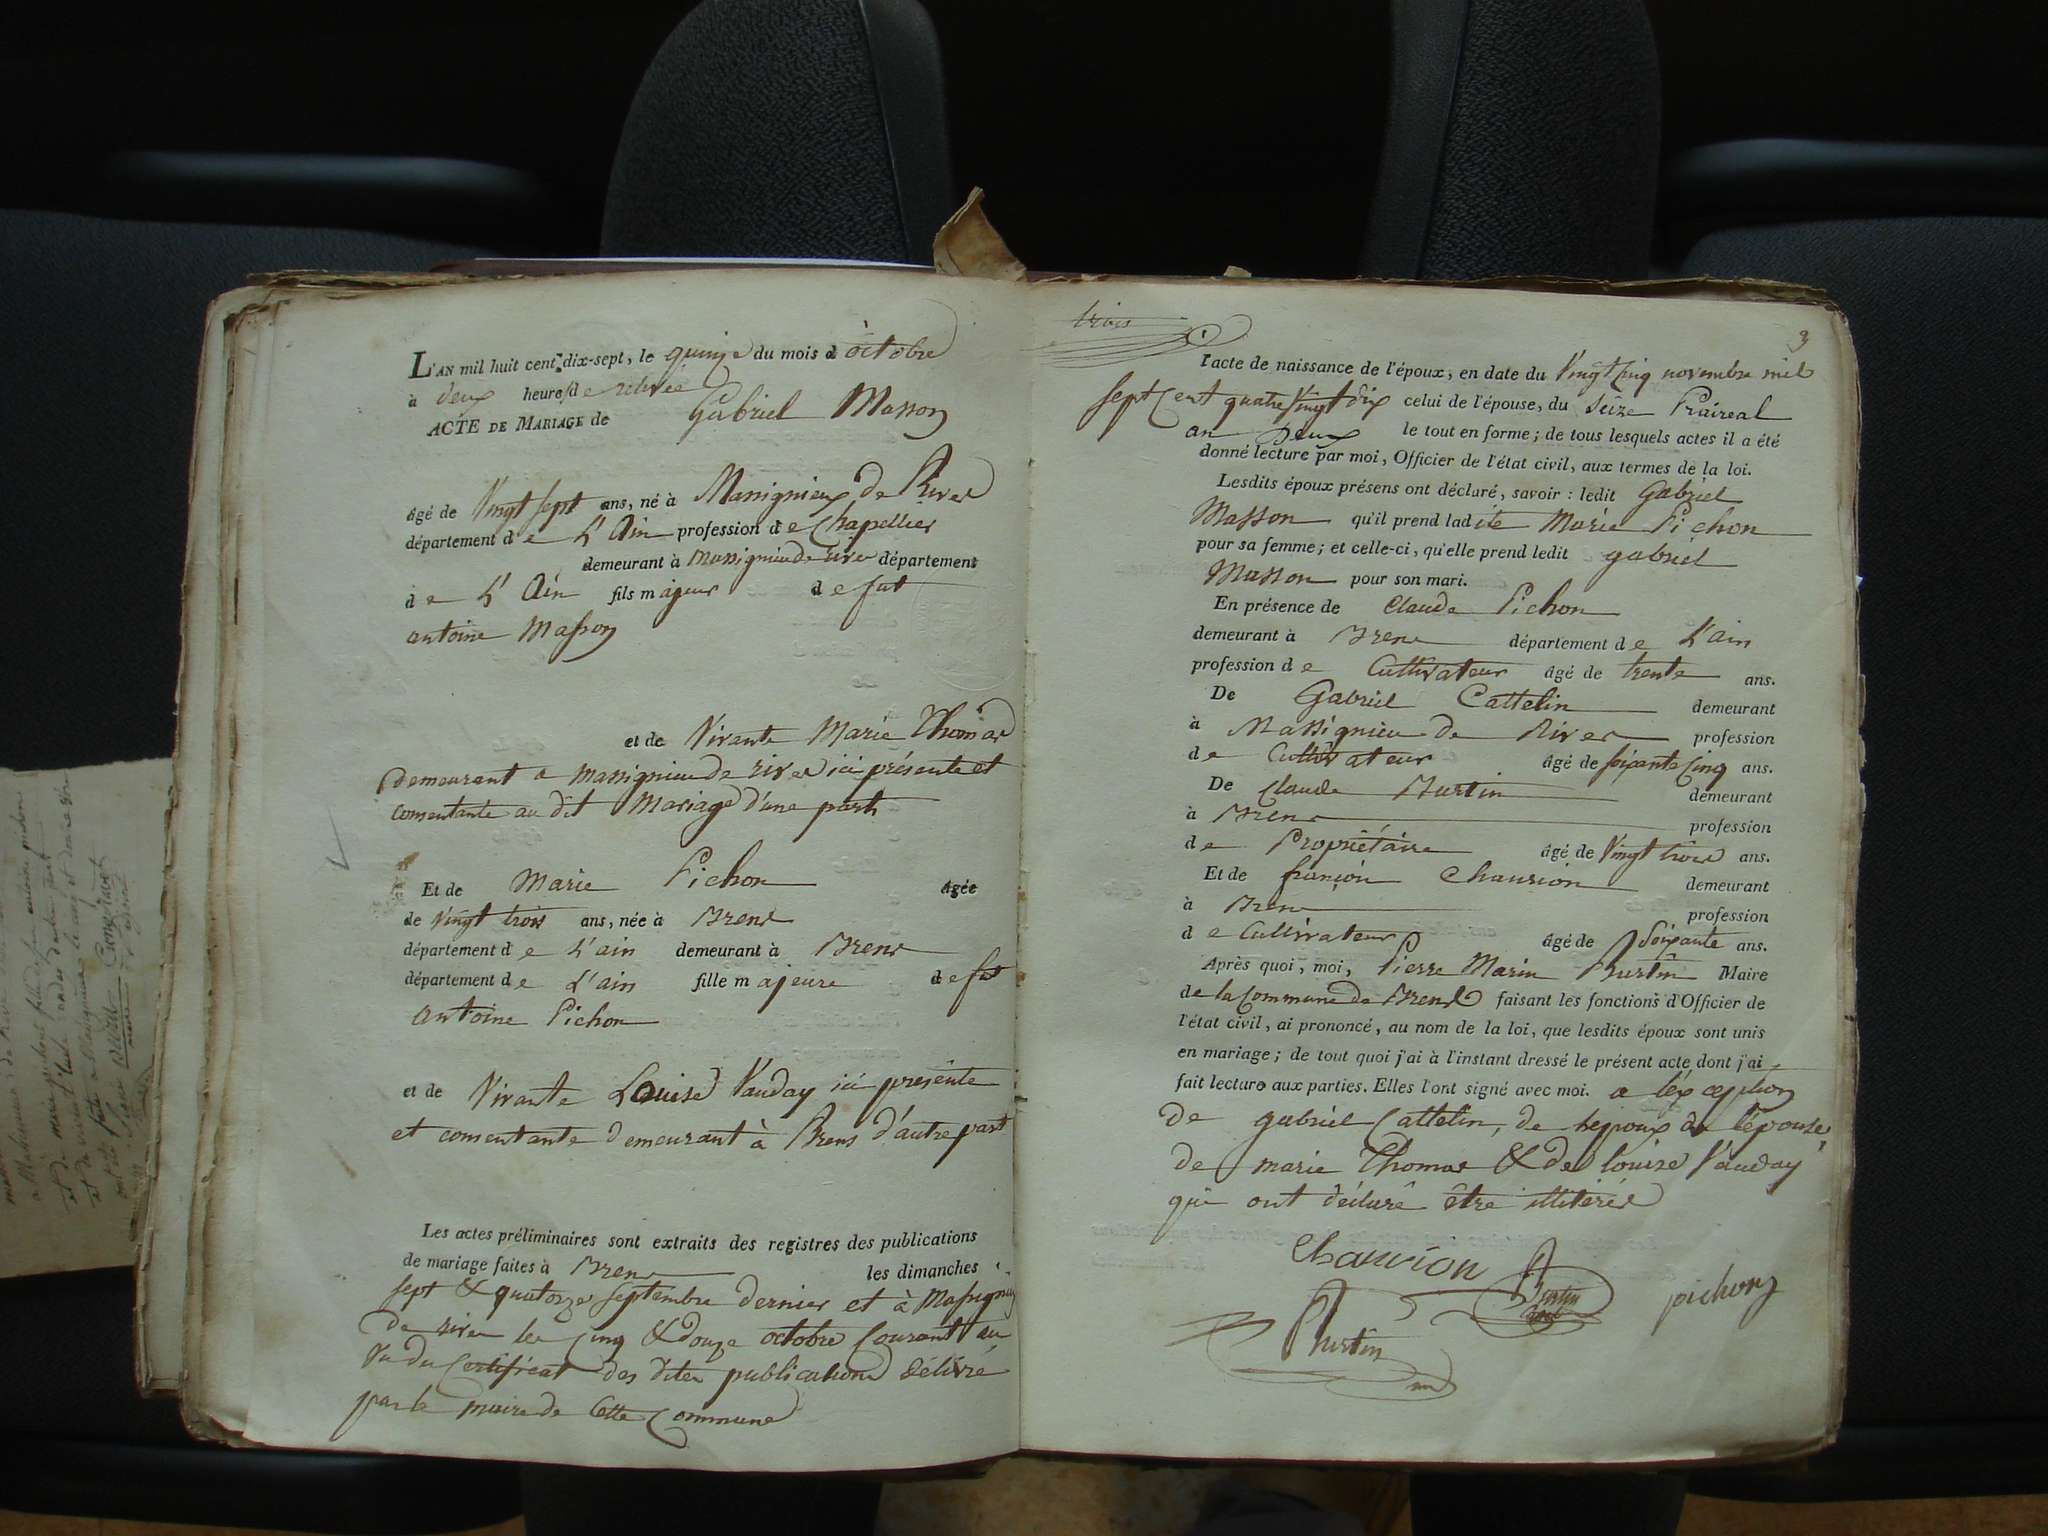 L'AN mil huit cent dix-sept, le quinze du mois d octobre
à deux heures de relevée
ACTE DE MARIAGE de Gabriel Masson
âgé de Vingt sept ans, né à Massignieux de Rives
département d e L'Ain profession d e Chapellier
demeurant à massignieu de rives département
d e L'Ain fils majeur d e fut
antoine Masson
et de Vivante Marie Thomas
demeurant a massignieu de rives ici présente et
consentante au dit Mariage d'une part
Et de Marie Pichon âgée
de Vingt trois ans, née à Brens
département d e L'ain demeurant à Brens
département d e L'ain fille majeure d e fut
Antoine Pichon
et de Vivante Louise Vauday ici présente
et consentante demeurant à Brens d'autre part
Les actes préliminaires sont extraits des registres des publications
de mariage faites à Brens les dimanches
sept & quatorze septembre dernier et à Massignieu
de rives les cinq & douze octobre Courant au
Vu du Certificat des dites publications délivré
par le maire de Cette Commune
trois
3
l'acte de naissance de l'époux, en date du Vingt Cinq novembre mil
sept Cent quatre Vingt dix celui de l'épouse, du Seize Praireal
an deux le tout en forme; de tous lesquels actes il a été
donné lecture par moi, Officier de l'état civil, aux termes de la loi.
Lesdits époux présens ont déclaré, savoir : ledit Gabriel
Masson qu'il prend ladite Marie Pichon
pour sa femme; et celle-ci, qu'elle prend ledit gabriel
Masson pour son mari.
En présence de Claude Pichon
demeurant à Brens département d e L'ain
profession d e Cultivateur âgé de trente ans.
De Gabriel Cattelin demeurant
à Massignieu de Rives profession
d e Cultivateur âgé de soixante Cinq ans.
De Claude Burtin demeurant
à Brens profession
d e Propriétaire âgé de Vingt trois ans.
Et de françois Chauvion demeurant
à Brens profession
d e Cultivateur âgé de Soixante ans.
Après quoi, moi, Pierre Marin Burtin Maire
de la Commune de Brens faisant les fonctions d'Officier de
l'état civil, ai prononcé, au nom de la loi, que lesdits époux sont unis
en mariage; de tout quoi j'ai à l'instant dressé le présent acte dont j'ai
fait lecture aux parties. Elles l'ont signé avec moi. a l'exception
de gabriel Cattelin, de l'époux de l'épouse,
de marie Thomas & de louise Vauday
qui ont déclaré être illitérés
Chauvion Burtin pichon
Burtin